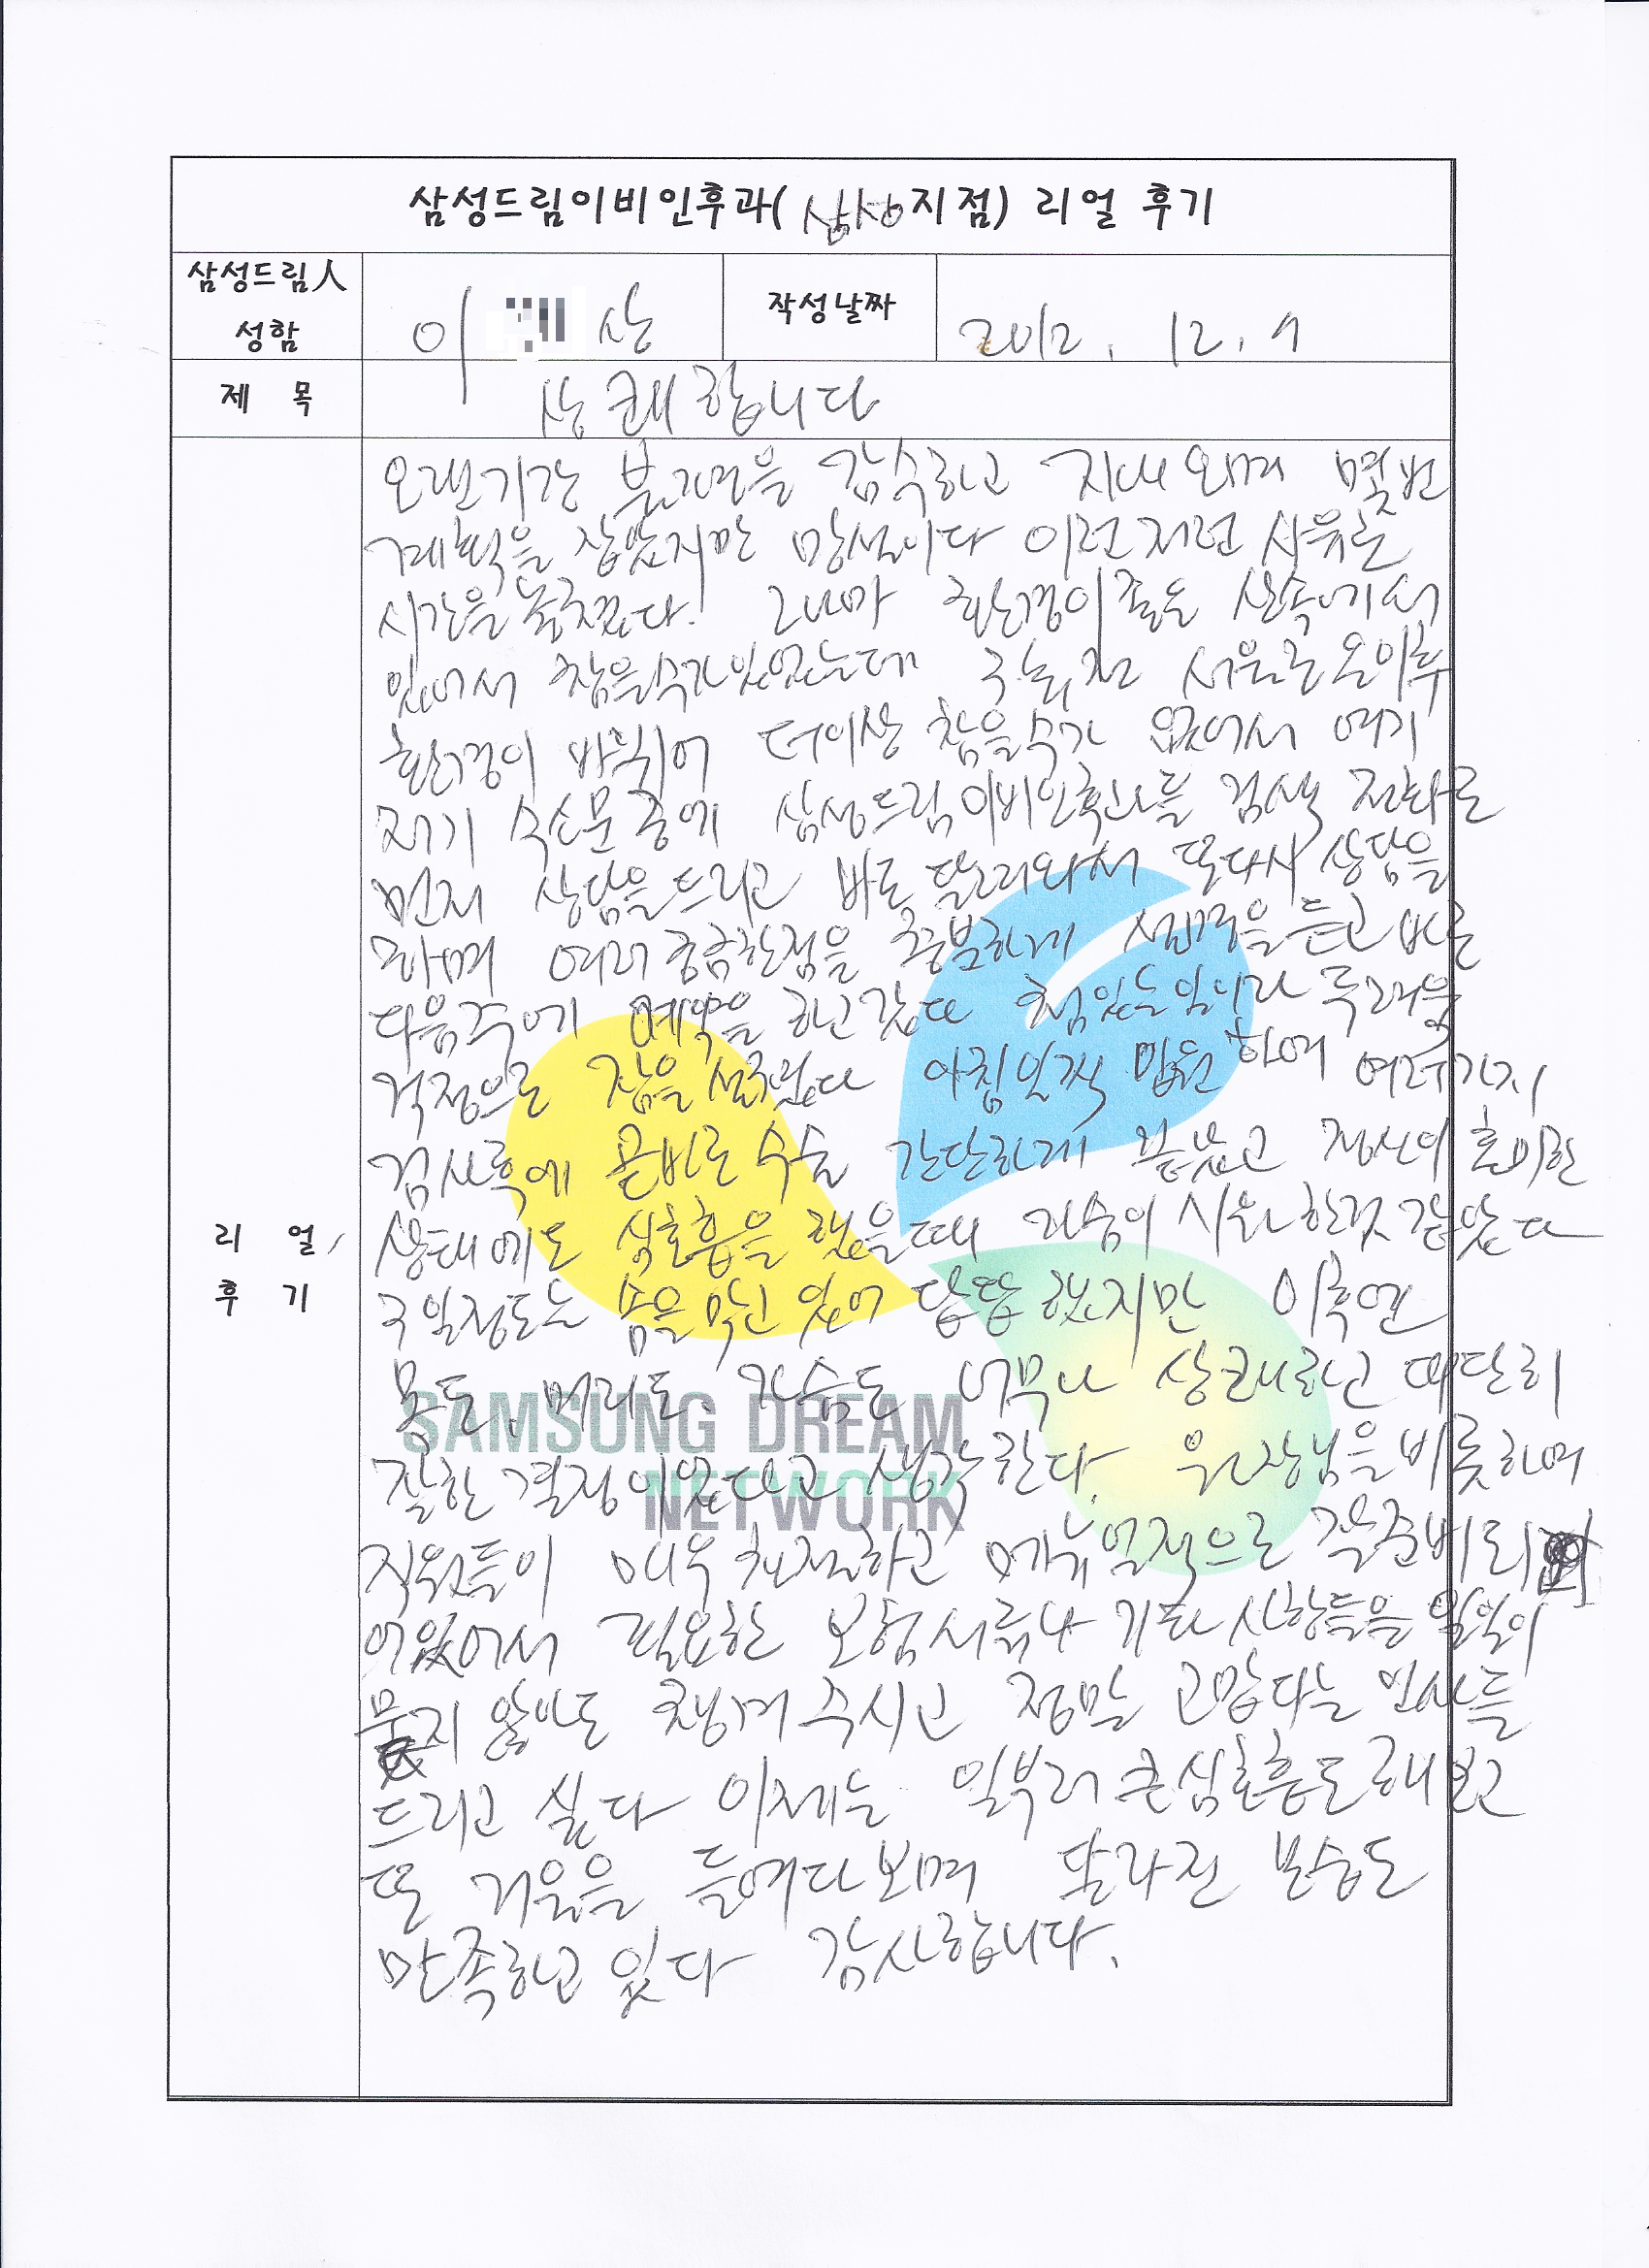 삼성드림이비인후과( 삼성지점) 리얼 후기
삼성드림人 성함
이 상
작성날짜
2012. 12. 9
제 목
상쾌합니다
리 얼 후 기
오랜기간 불편을 감수하고 지내오며 몇번
계획을 잡았지만 망설이다 이런저런 사유로
시간을 놓쳤다. 그나마 환경이 좋은 산속에서
있어서 참을수가있었는데 서울로 온이후
환경이 바뀌어 더이상 참을수가 없어서 여기
저기 수소문중에 삼성드림이비인후과를 검색 전화로
먼저 상담을드리고 바로 달려와서 또다시 상담을
하며 여러 궁금한점을 충분하게 설명을 듣고 바로
다음주에 예약을 하고갔다 코
걱정으로 잠을 설쳤다 아침일찍 병원 하여 여러가지
검사후에 곧바로 수술 간단하게 끝났고 정신이 흐미한
상태에도 심호흡을 했을때 가슴이 시원한것 같았다
일정도는 숨을 막고 있어 답답했지만 이후엔
몸도, 머리도, 가슴도 너무나 상쾌하고 대단히
잘한 결정이었다고 생각한다. 원장님을 비롯하여
직원들이 매우 친절하고 메뉴얼적으로 잘준비되
어있어서 필요한 보험서류나 기타 사항들을 일일이
묻지 않아도 챙겨주시고 정말 고맙다는 인사를
드리고 싶다 이제는 일부러 큰심호흡도 해보고
또 거울을 들여다보며 달라진 모습도
만족하고 있다 감사합니다.
SAMSUNG DREAM
NETWORK